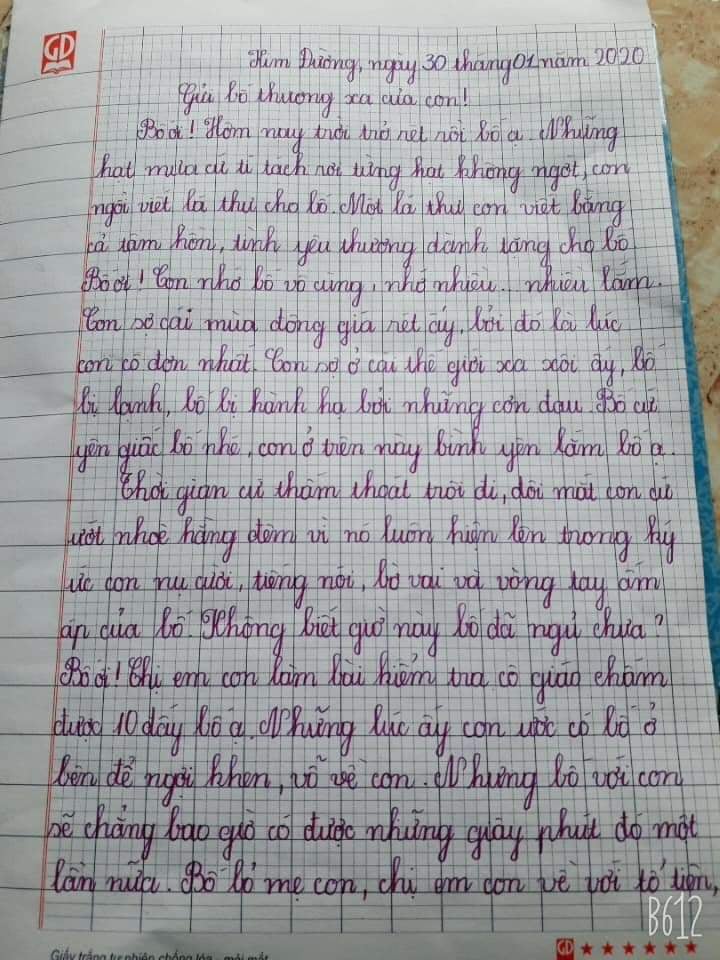 GD
Kim Đường, ngày 30 tháng 01 năm 2020
Gửi bố thương xa của con!
Bố ơi! Hôm nay trời trở rét rồi bố ạ. Những
hạt mưa cứ tí tách rơi từng hạt không ngớt, con
ngồi viết lá thư cho bố. Một lá thư con viết bằng
cả tâm hồn, tình yêu thương dành tặng cho bố
Bố ơi! Con nhớ bố vô cùng, nhớ nhiều.. nhiều lắm.
Con sợ cái mùa đông giá rét ấy, bởi đó là lúc
con cô đơn nhất. Con sợ ở cái thế giới xa xôi ấy, bố
bị lạnh, bố bị hành hạ bởi những cơn đau. Bố cứ
yên giấc bố nhé, con ở trên này bình yên lắm bố ạ.
Thời gian cứ thấm thoát trôi đi, đôi mắt con cứ
ướt nhoè hằng đêm vì nó luôn hiện lên trong ký
ức con nụ cười, tiếng nói, bờ vai và vòng tay ấm
áp của bố. Không biết giờ này bố đã ngủ chưa?
Bố ơi! Chị em con làm bài kiểm tra cô giáo chấm
được 10 đấy bố ạ. Những lúc ấy con ước có bố ở
bên để ngợi khen, vỗ về con. Nhưng bố với con
sẽ chẳng bao giờ có được những giây phút đó một
lần nữa. Bố bỏ mẹ con, chị em con về với tổ tiên,
B612
Giấy trắng tự nhiên chống lóa - mỏi mắt
GD